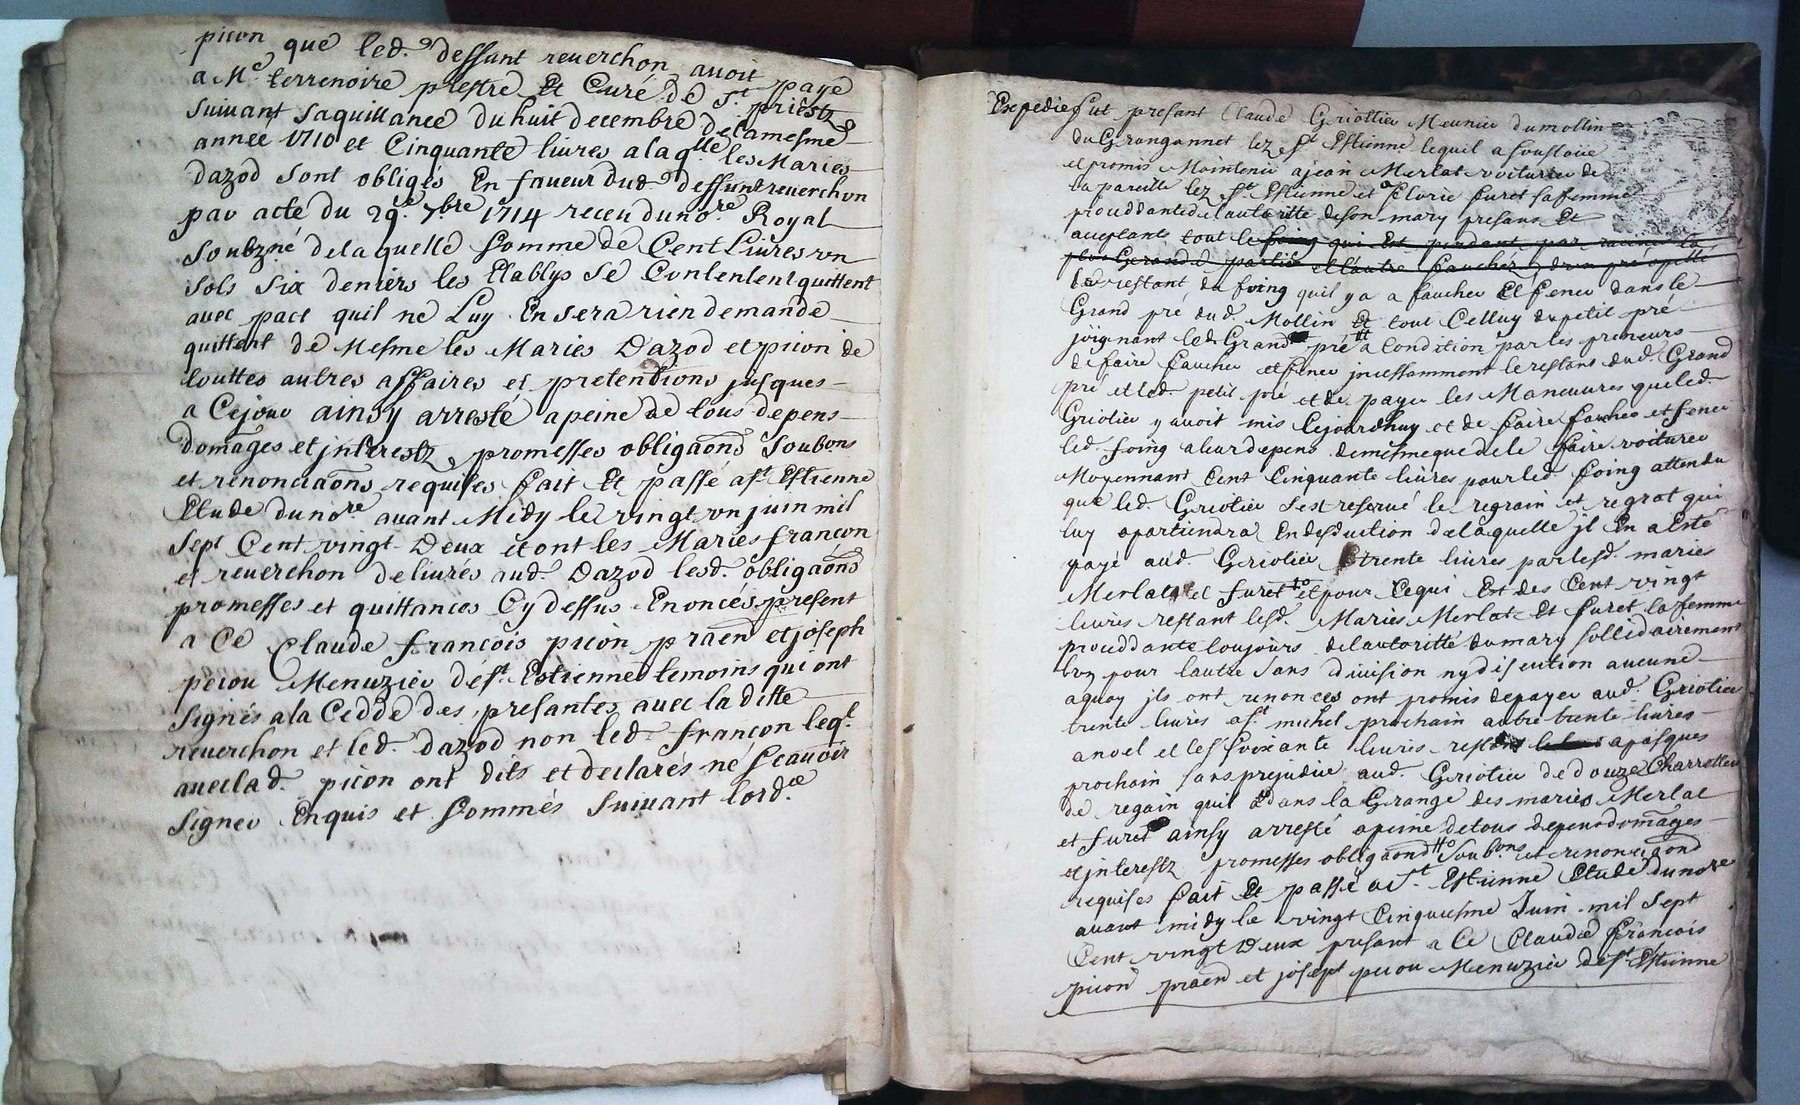 picon que led. deffunt reuerchon auoit payé
a Me. terrenoire prestre Et Curé de St. priestz
suiuant saquittance du huit decembre delamesme
année 1710 et Cinquante liures alaqlle les Maries
dazod sont obligés En faueur dud deffunt reuerchon
par acte du 29e. 7bre 1714 receu du nore. Royal
soubzné delaquelle somme de Cent Liures vn
sols six deniers les Etablys se Contentent quittent
auec pact quil ne Luy En sera rien demande
quittent de Mesme les Maries Dazod et picon de
touttes autres affaires et pretentions jusques
a Cejour ainsy arresté apeine de tous depens
domages et jnterestz promesses obligaons soubons
et renonciaons requises fait Et passé a St Estienne
Etude du nore. auant Midy le vingt vn juin mil
sept Cent vingt Deux et ont les Maries françon
et reuerchon deliurés aud. Dazod lesd. obligaons
promesses et quittances Cy dessus Enoncés present
a Ce Claude françois picon praen et joseph
perou Menuzier de St. Estienne temoins qui ont
signés ala Cedde des presantes auec la ditte
reuerchon et led. dazod non led. françon leqt.
auec lad. picon ont dits et declarés né scauoir
signer Enquis et sommés suiuant lordce
Expedié fut presant Claude Griottier Meunier dumollin
du Grangannet lez St Estienne lequel a
et promis Maintenir a jean Merlat voiturier de
la pareille lez St. Estienne et a Florie furet safemme
proceddante de lautoritté deson mary presans Et
acceptants tout le foing qui Est pendant par racine la
plus Grande partie et lautre fauchée dun pré apellé
le restant du foing quil y a a faucher Et fener dans le
Grand pré dud. Mollin Et tout Celluy du petit pré
joignant led. Grand pré a Condition par les preneurs
de faire faucher et fener jncessamment le restans dud. Grand
pré et led. petit pré et de payer les Manœuures que led.
Griotier y auoit mis Cejourdhuy et de faire faucher et fener
led. foing aleur depens demesme que dele faire voiturer
Moyennant Cent Cinquante liures pour led. foing attendu
que led. Griotier sest reserué le regrain et regrat qui
luy apartiendra En deduction delaquelle jl En a Esté
payé aud. Griotier trente liures par lesd. maries
Merlat et furet et pour Cequi Est des Cent vingt
liures restant lesd. Maries Merlat Et furet la femme
proceddante toujours delautoritté du mary sollidairement
lvn pour lautre sans diuision ny discution aucune
aquoy jls ont renonces ont promis depayer aud. Griotier
trente liures a St. michel prochain autre trente liures
a noel et les soixante liures restans a pasques
prochain sans prejudice aud. Griotier de douze Charrettes
de regain quil a dans la Grange des maries Merlat
et furet ainsy arresté apeine detous depens domages
et jnterestz promesses obligaons soubons et renonciaons
requises fait Et passé a St. Estienne Etude du nore
auant midy le vingt Cinquiesme Juin mil sept
Cent vingt Deux presant a Ce Claude françois
picon praen et josept perou Menuzier de St Estienne